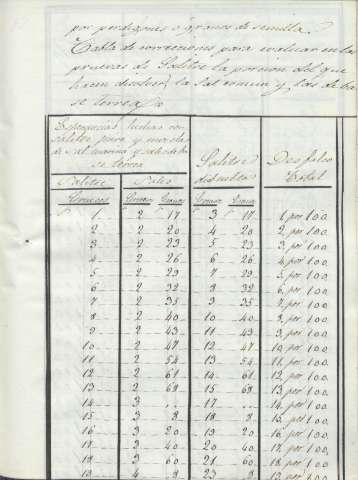 por perdigones ó granos de semilla.
Tabla de correcciones para evaluar en las
pruebas de Salitre la porcion del que
hacen disolver la Sal comun y las de ba
se terrea
Esperiencias hechas con
salitre puro y mezcla
de Sal marina y sales de ba
se terrea
Salitre
disuelto
Desfalco
Total
Salitre Sales
Gruesos Gruesos Granos Gruesos Granos
1 2 17 3 17 1 por 100
2 2 20 4 20 2 por 100
3 2 23 5 23 3 por 100
4 2 26 6 26 4 por 100
5 2 29 7 29 5 por 100
6 2 32 8 32 6 por 100
7 2 35 9 35 7 por 100
8 2 40 10 40 8 por 100
9 2 43 11 43 9 por 100
10 2 47 12 47 10 por 100
11 2 54 13 54 11 por 100
12 2 61 14 61 12 por 100
13 2 68 15 68 13 por 100
14 3 .. 17 .. 14 por 100
15 3 8 18 8 15 por 100
16 3 20 19 20 16 por 100
17 3 40 20 40 17 por 100
18 3 60 21 60 18 por 100
19 4 8 23 8 19 por 100